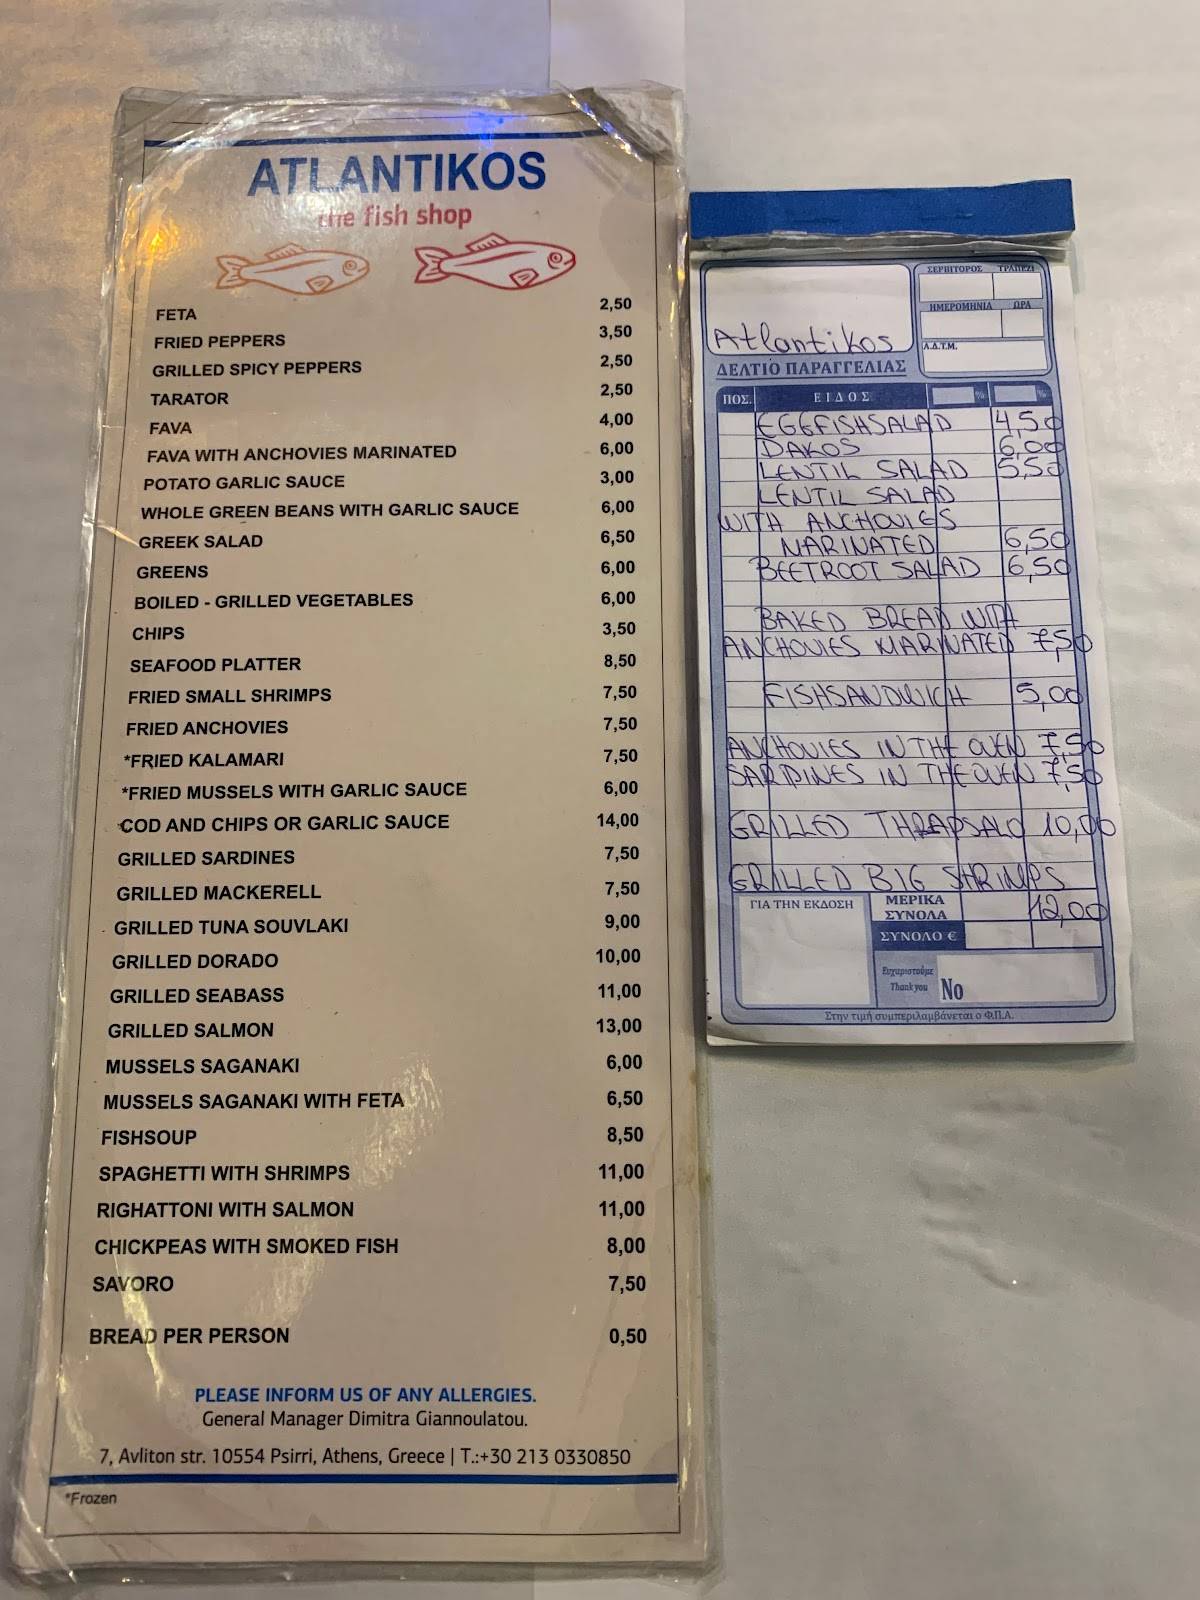 ATLANTIKOS
the fish shop
FETA 2,50
FRIED PEPPERS 3,50
GRILLED SPICY PEPPERS 2,50
TARATOR 2,50
FAVA 4,00
FAVA WITH ANCHOVIES MARINATED 6,00
POTATO GARLIC SAUCE 3,00
WHOLE GREEN BEANS WITH GARLIC SAUCE 6,00
GREEK SALAD 6,50
GREENS 6,00
BOILED - GRILLED VEGETABLES 6,00
CHIPS 3,50
SEAFOOD PLATTER 8,50
FRIED SMALL SHRIMPS 7,50
FRIED ANCHOVIES 7,50
*FRIED KALAMARI 7,50
*FRIED MUSSELS WITH GARLIC SAUCE 6,00
COD AND CHIPS OR GARLIC SAUCE 14,00
GRILLED SARDINES 7,50
GRILLED MACKERELL 7,50
GRILLED TUNA SOUVLAKI 9,00
GRILLED DORADO 10,00
GRILLED SEABASS 11,00
GRILLED SALMON 13,00
MUSSELS SAGANAKI 6,00
MUSSELS SAGANAKI WITH FETA 6,50
FISHSOUP 8,50
SPAGHETTI WITH SHRIMPS 11,00
RIGHATTONI WITH SALMON 11,00
CHICKPEAS WITH SMOKED FISH 8,00
SAVORO 7,50
BREAD PER PERSON 0,50
PLEASE INFORM US OF ANY ALLERGIES.
General Manager Dimitra Giannoulatou.
7, Avliton str. 10554 Psirri, Athens, Greece | T.:+30 213 0330850
*Frozen
ΣΕΡΒΙΤΟΡΟΣ ΤΡΑΠΕΖΙ
ΗΜΕΡΟΜΗΝΙΑ ΩΡΑ
Atlantikos Α.Δ.Τ.Μ.
ΔΕΛΤΙΟ ΠΑΡΑΓΓΕΛΙΑΣ
ΠΟΣ. ΕΙΔΟΣ % %
EGGFISHSALAD 4,50
DAKOS 6,00
LENTIL SALAD 5,50
LENTIL SALAD
WITH ANCHOVIES
MARINATED 6,50
BEETROOT SALAD 6,50
BAKED BREAD WITH
ANCHOVIES MARINATED 7,50
FISHSANDWICH 5,00
ANCHOVIES IN THE OVEN 7,50
SARDINES IN THE OVEN 7,50
GRILLED THRAPSALO 10,00
GRILLED BIG SHRIMPS
ΓΙΑ ΤΗΝ ΕΚΔΟΣΗ ΜΕΡΙΚΑ ΣΥΝΟΛΑ 12,00
ΣΥΝΟΛΟ €
Ευχαριστούμε
Thank you No
Στην τιμή συμπεριλαμβάνεται ο Φ.Π.Α.